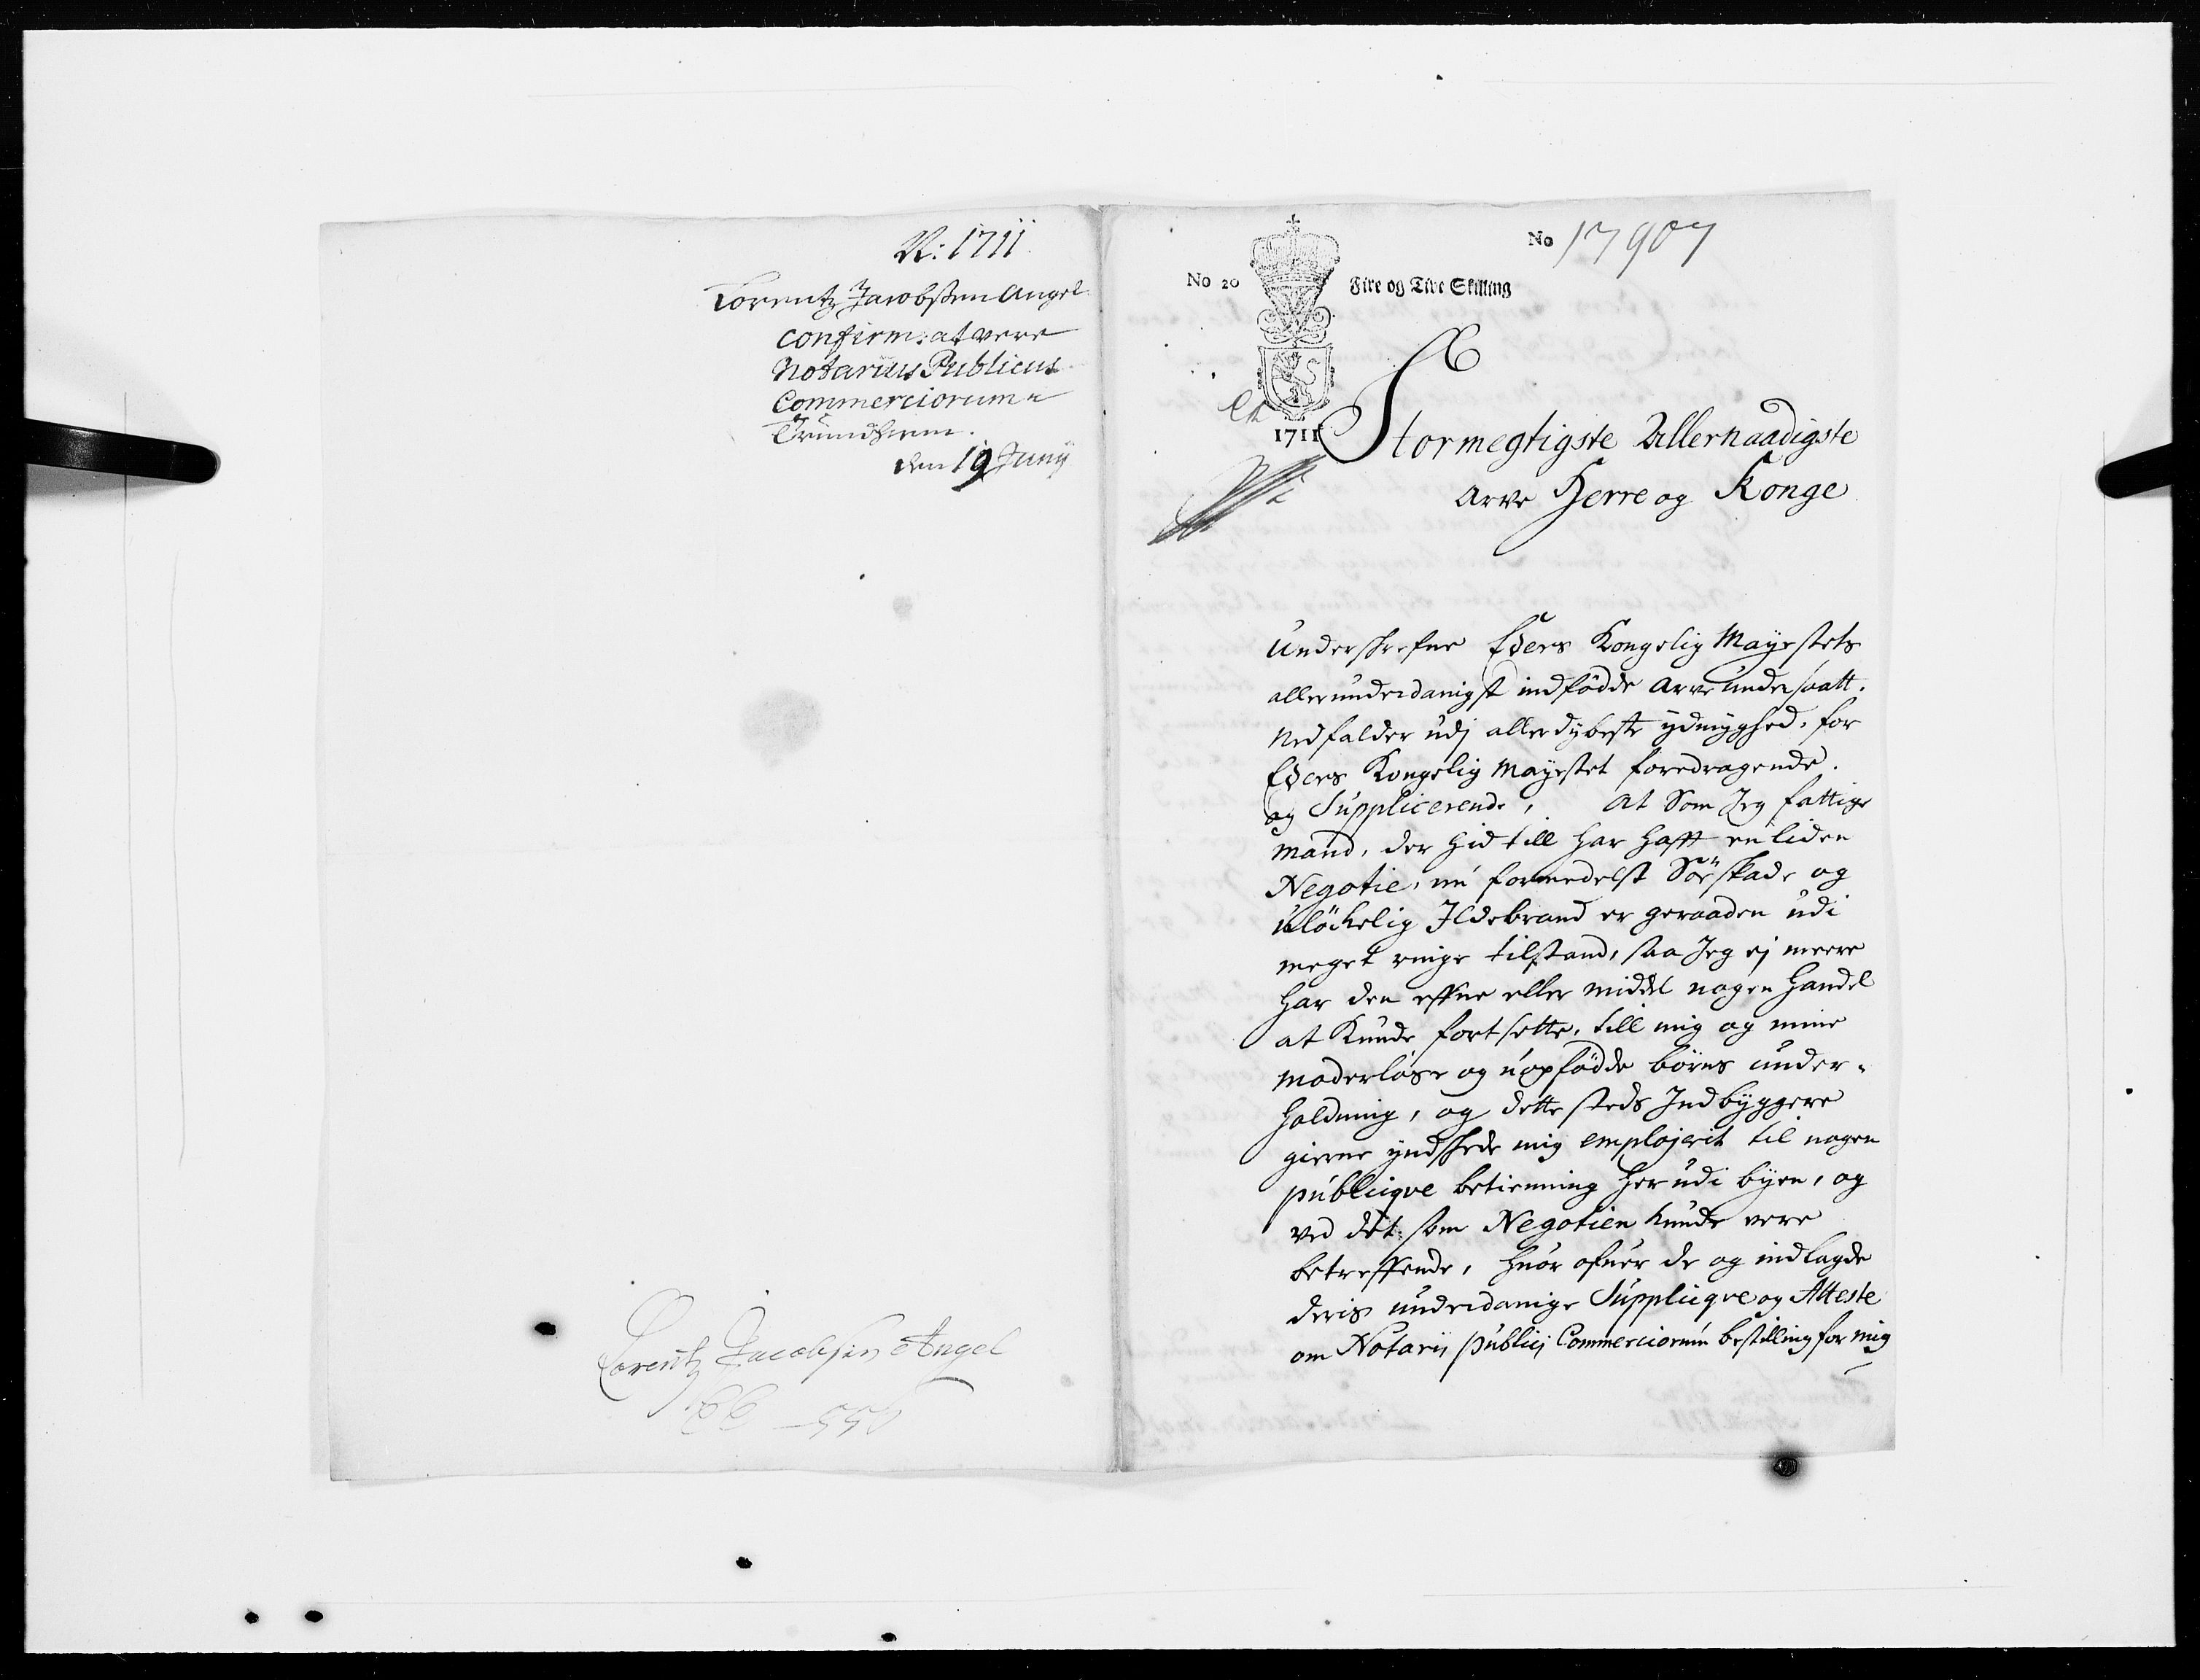 N: 1711.
Lorentz Jacobssen Angel
confirm: at vere
Notarius Publicus
Commerciorum i
Trundhiem.
den 19 Junij
Lorentz Jacobsen Angel
No 17907
No 20 Fire og Tive Skilling
1711
Stormegtigste Allernaadigste
Arve Herre og Konge
Underskrefne Eders Kongelig Mayestets
allerunderdanigst indfødde Arve undersaatt.
Nedfalder udj allerdybeste ydmyghed, for
Eders Kongelig Mayestet foredragende.
og Supplicerende, At Som Jeg fattige
Mand, der hid till har hafft en liden
Negotie, nu formedelst Söe skade og
ulöckelig Ildebrand er geraaden udi
meget ringe tilstand, saa Jeg ej meere
har den effne eller middel nogen Handel
at Kunde fortsette, till mig og mine
moderløse og uopfødde børns under-
holdning, og dette steds Indbyggere
gierne ynskede mig emplojerit til nogen
publiqve betienning her udi byen, og
ved det: som Negotien kunde vere
betreffende, huor ofuer de og indlagde
deris underdanige Suppliqve og Atteste
om Notarij publicj Commerciorum bestilling for mig